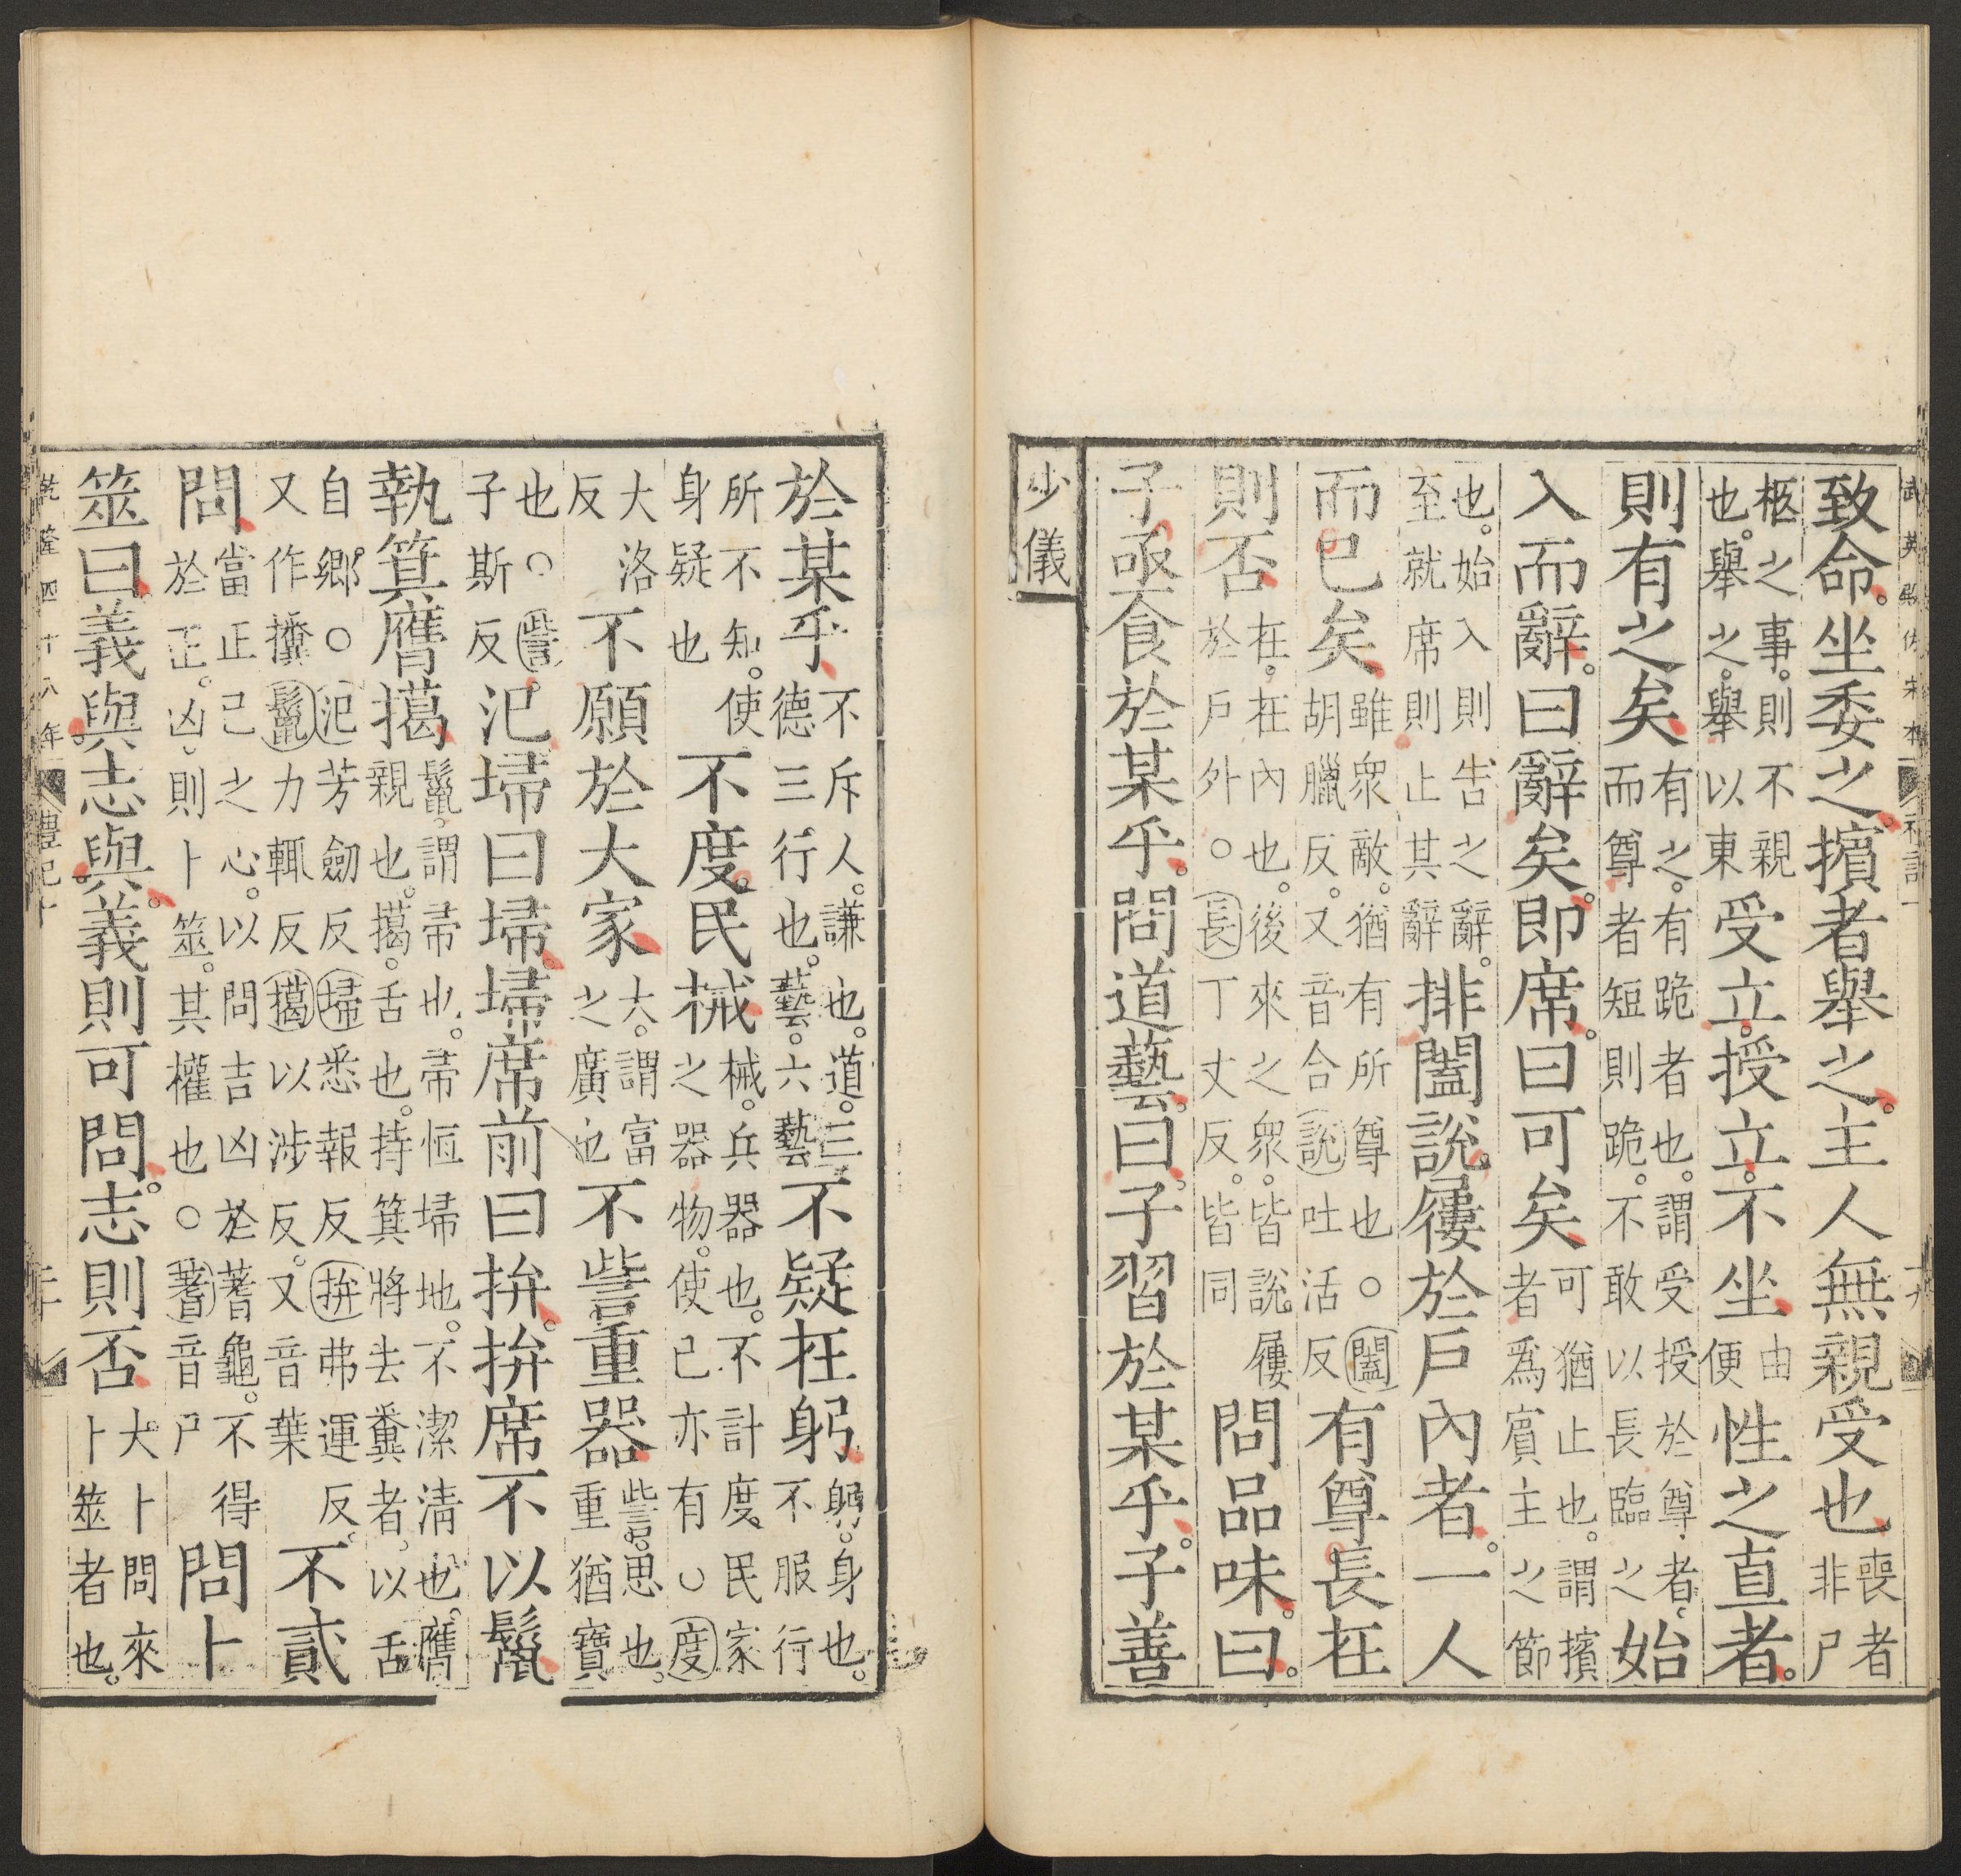 武英殿仿宋本 禮記十 十九
致命。坐委之。擯者舉之。主人無親受也喪者非尸
柩之事。則不親也。舉之。舉以東受立。授立。不坐由便性之直者。
則有之矣有之。有跪者也。謂受授於尊者。而尊者短則跪。不敢以長臨之始
入而辭。曰辭矣。即席。曰可矣可猶止也。謂擯者爲賓主之節
也。始入則告之辭。至就席則止其辭排闔說屨於戶內者。一人
而已矣雖衆敵。猶有所尊也○闔胡臘反。又音合說吐活反有尊長在
則否在。在內也。後來之衆。皆說屨於戶外○長丁丈反。皆同問品味。曰。
子亟食於某乎。問道藝。曰。子習於某乎。子善
少儀
於某乎不斥人。謙也。道。三德三行也。藝。六藝不疑在躬躬。身也。不服行
所不知。使身疑也不度民械械。兵器也。不計度民家之器物。使己亦有○度
大洛反不願於大家大。謂富之廣也不訾重器訾。思也。重猶寶
也○訾子斯反氾埽曰埽埽席前曰拚。拚席不以鬣
執箕膺擖鬣。謂帚也。帚恒埽地。不潔清也。膺親也。擖。舌也。持箕將去糞者。以舌
自鄉○氾芳劒反埽悉報反拚弗運反。又作攩鬣力輒反擖以涉反。又音葉不貳
問當正己之心。以問吉凶於蓍龜。不得於正。凶則卜筮。其權也○蓍音尸問卜
筮曰義與志與。義則可問。志則否大卜問來卜筮者也。
乾隆四十八年 禮記十 二十